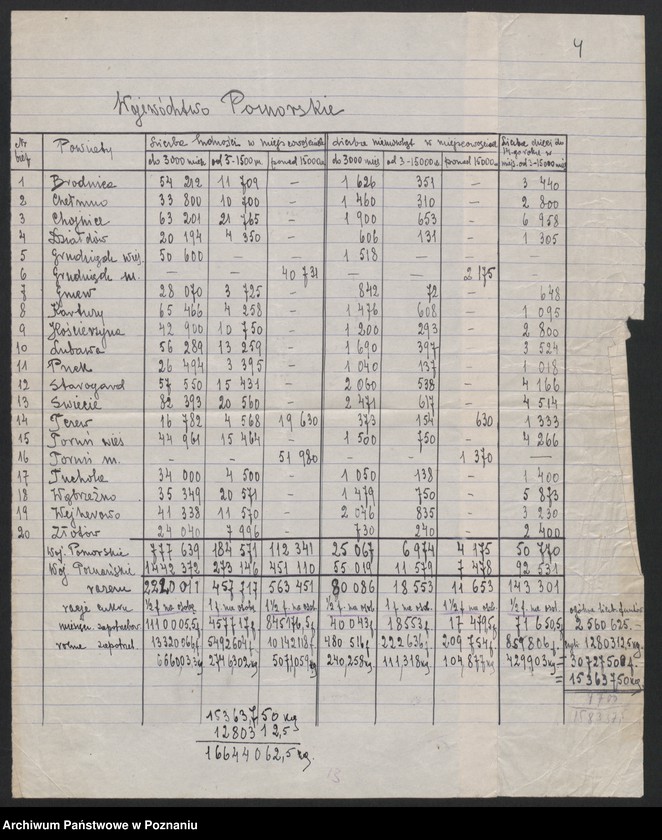 4
Województwo Pomorskie
Nr bież. Powiaty Liczba ludności w miejscowościach Liczba niemowląt w miejscowościach Liczba dzieci do 14-go roku w
do 3000 miesz. od 3-15000 m. ponad 15000 m. do 3000 mies. od 3-15000 m. ponad 15000 m. miej. od 3-15000 miesz.
1 Brodnica 54 212 11 709 — 1 626 351 — 3 440
2 Chełmno 33 800 10 700 — 1 460 310 — 2 800
3 Chojnice 63 201 21 765 — 1 900 653 — 6 958
4 Działdów 20 194 4 350 606 131 — 1 305
5 Grudziądz wiej. 50 600 — — 1 518 —
6 Grudziądz m. — — 40 731 — — 2 175 —
7 Gniew 28 070 3 725 — 842 72 — 648
8 Kartuzy 65 466 4 258 — 1 476 608 — 1 095
9 Kościerzyna 42 900 10 750 — 1 200 293 — 2 800
10 Lubawa 56 289 13 259 — 1 690 397 — 3 524
11 Puck 26 494 3 395 — 1 040 137 — 1 018
12 Starogard 57 550 15 431 — 2 060 538 — 4 166
13 Świecie 82 393 20 560 — 2 471 617 — 4 514
14 Tczew 16 782 4 568 19 630 373 154 630 1 333
15 Toruń wieś 44 961 15 464 — 1 500 750 — 4 266
16 Toruń m. — — 51 980 — — 1 370 —
17 Tuchola 34 000 4 500 — 1 050 138 — 1 400
18 Wąbrzeźno 35 349 20 571 — 1 479 750 — 5 873
19 Wejherowo 41 338 11 570 — 2 046 835 — 3 230
20 Złotów 24 040 7 996 — 730 240 — 2 400
Woj. Pomorskie 777 639 184 571 112 341 25 067 6 974 4 175 50 770
Woj. Poznańskie 1442 372 273 146 451 110 55 019 11 579 7 478 92 531
razem 2220 011 457 717 563 451 80 086 18 553 11 653 143 301
racje cukru ½ f. na osobę 1 f. na osob. 1½ f. na osob. ½ f. na osob. 1 f. na osob. 1½ f. na osob. ½ f. na os. ogólna liczb. funtów
miesięcz. zapotrzebow. 1110005,5 457717 f. 845176,5 f. 40043 f. 18553 f. 17 479,5 f. 71 650,5 2 560 625.—
roczne zapotrzeb. 13320066 f. 5492604 f. 10142118 f. 480 516 f. 222 636 f. 209 754 f. 859806 f. 1280312,5 kg.
6660033 kg 2746302 kg 5071059 kg 240,258 kg 111,318 kg 104,877 kg 429903 kg = 30727500 f.
= 15363750 kg
15363,750 kg
1280312,5
16644062,5 kg.
13
Archiwum Państwowe w Poznaniu